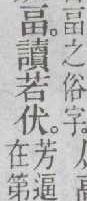 畐之俗字。从
畐。讀若伏。
芳逼
在第